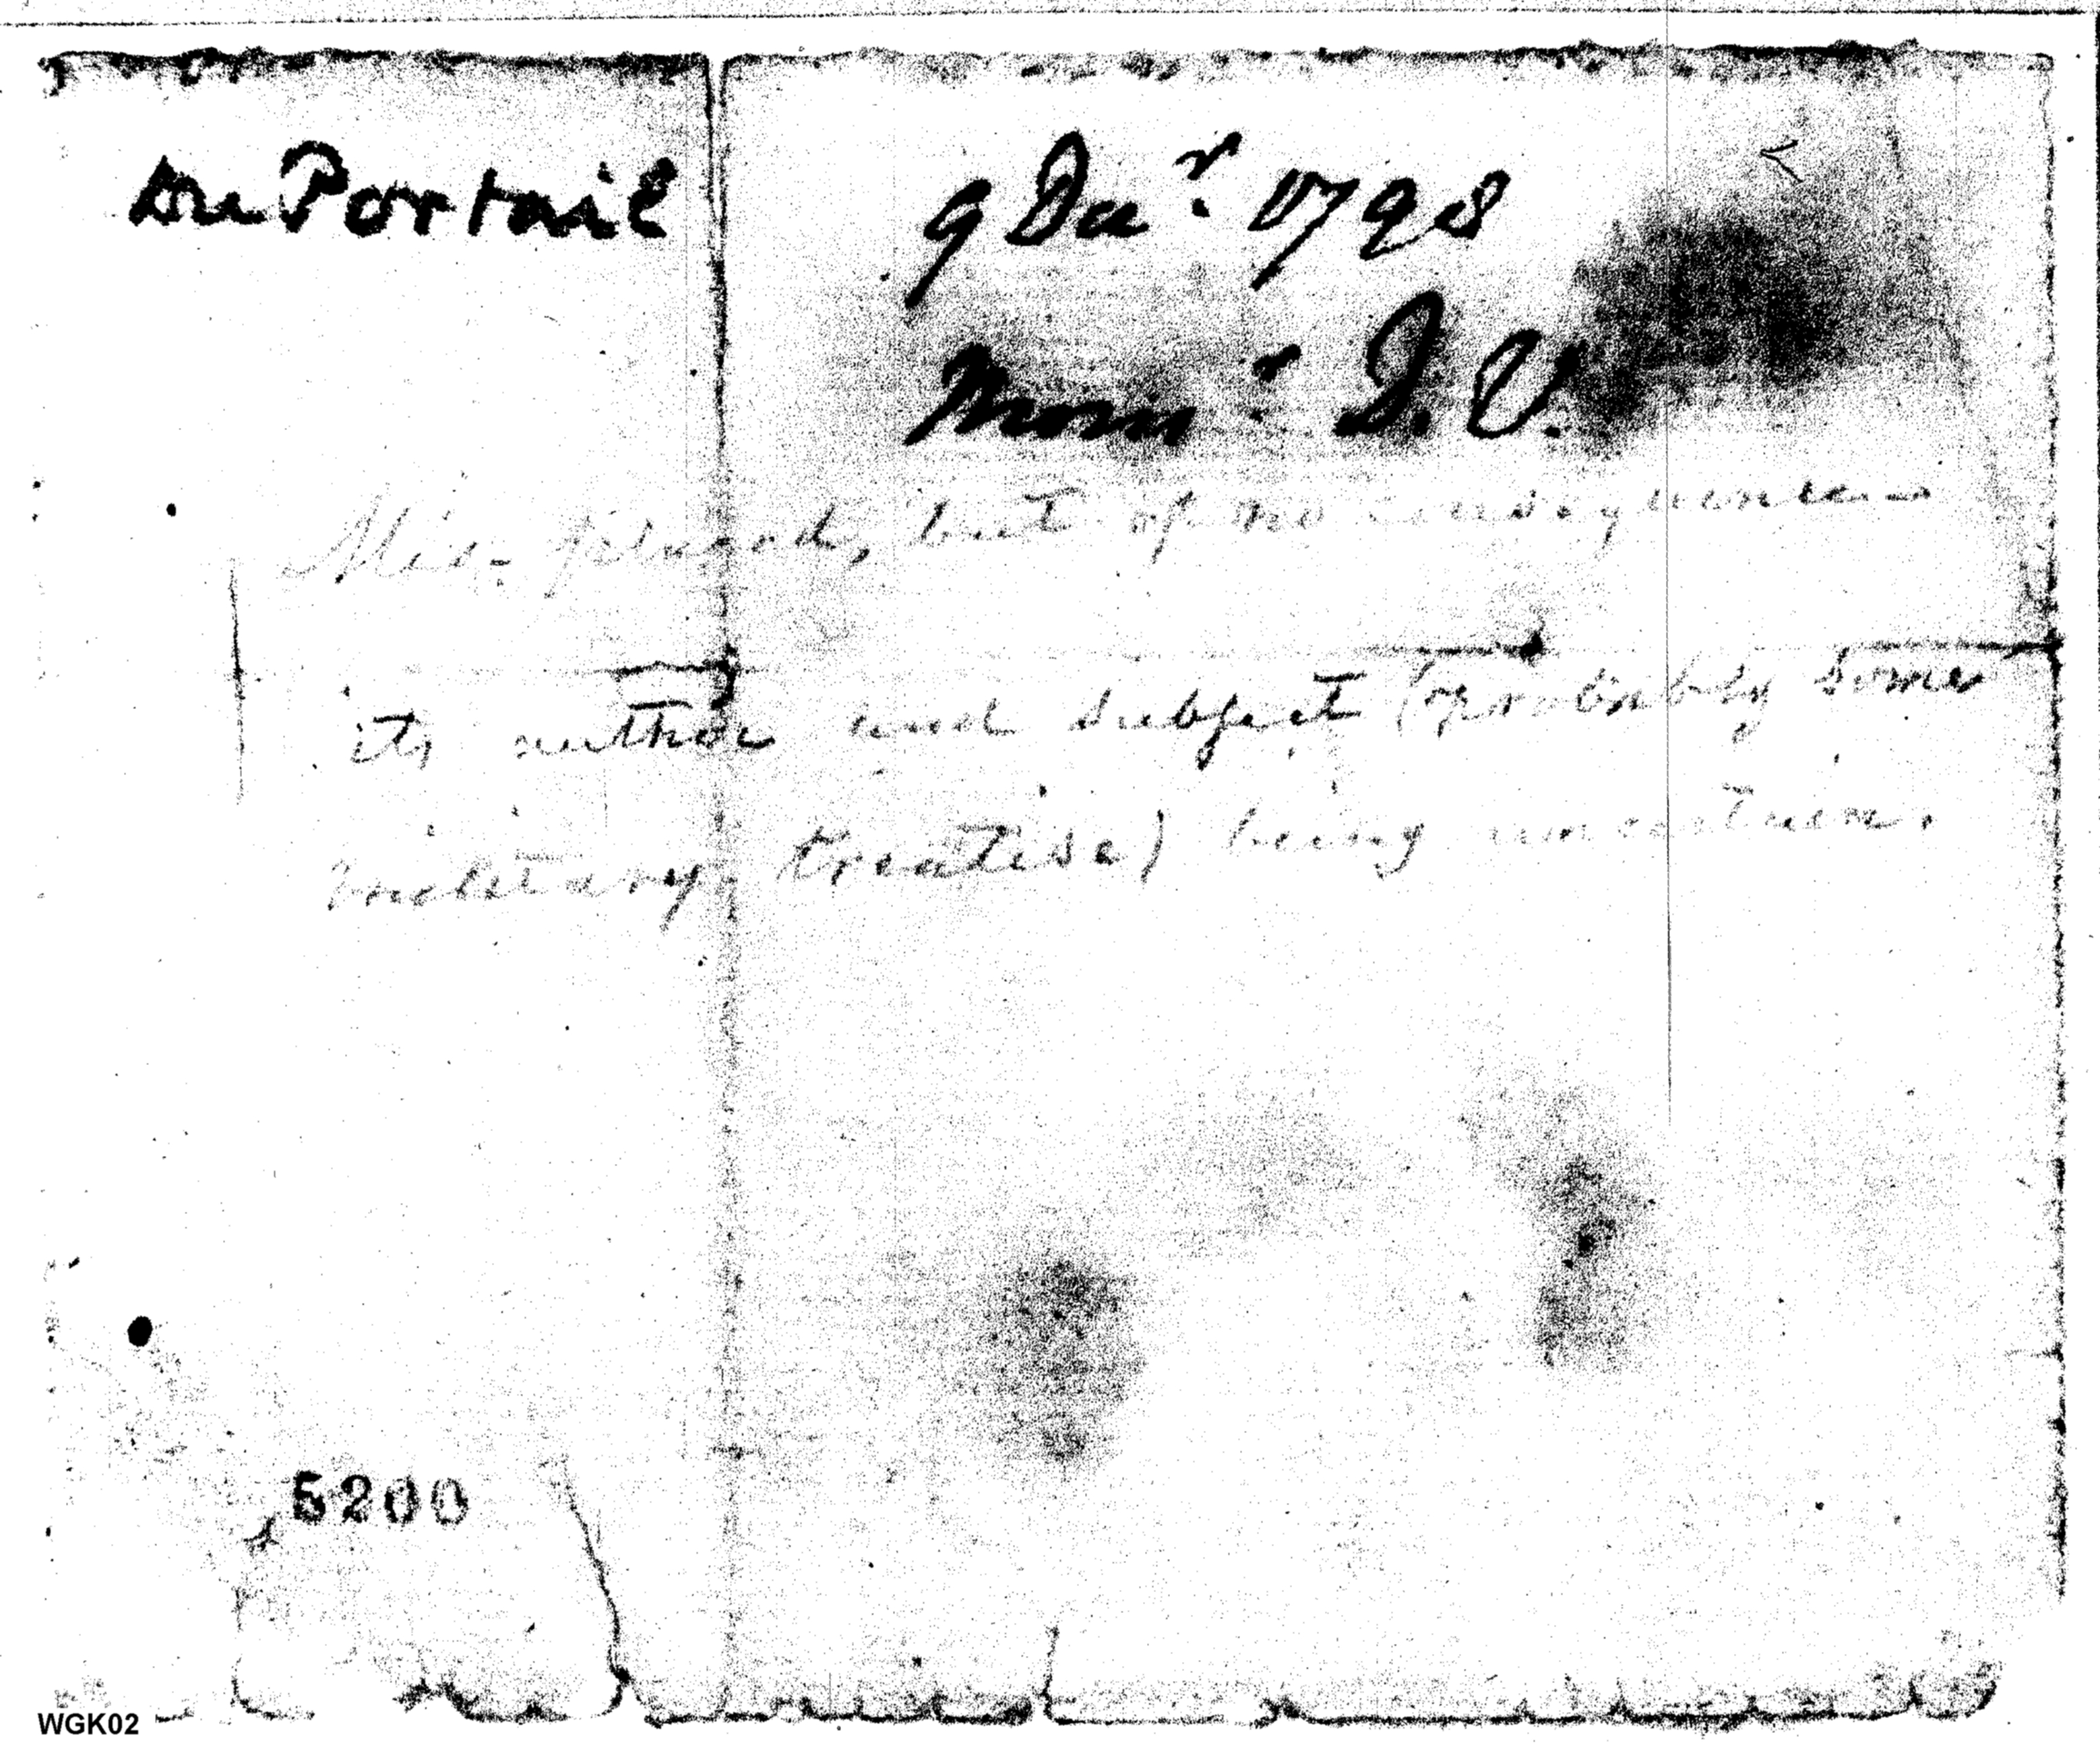 Du Portail
9 Decr. 1798
Memr. D. V.
Mis-placed, but of no consequence
its author and subject (probably some
military treatise) being uncertain.
5200
WGK02